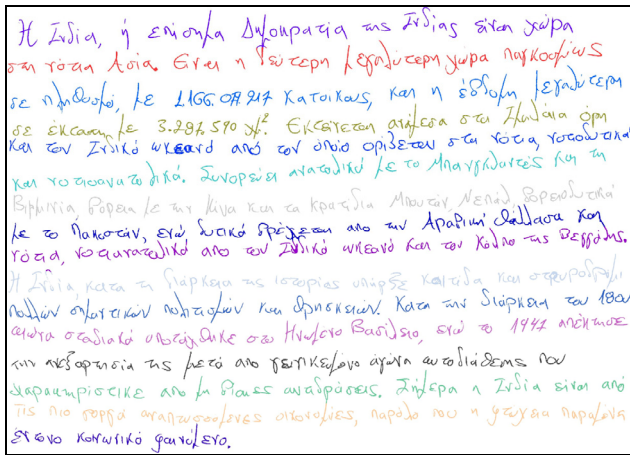 Η Ινδία, ή επίσημα Δημοκρατία της Ινδίας είναι χώρα
στη νότια Ασία. Είναι η δεύτερη μεγαλύτερη χώρα παγκοσμίως
σε πληθυσμό, με 1.166.079.217 κατοίκους, και η έβδομη μεγαλύτερη
σε έκταση με 3.287.590 χμ². Εκτείνεται ανάμεσα στα Ιμαλάια όρη
και τον Ινδικό ωκεανό από τον οποίο ορίζεται στα νότια, νοτιοδυτικά
και νοτιοανατολικά. Συνορεύει ανατολικά με το Μπανγκλαντές και τη
Βιρμανία, βόρεια με την Κίνα και τα κρατίδια Μπουτάν, Νεπάλ, βορειοδυτικά
με το Πακιστάν, ενώ δυτικά βρέχεται από την Αραβική θάλασσα και
νότια, νοτιανατολικά από τον Ινδικό ωκεανό και τον Κόλπο της Βεγγάλης.
Η Ινδία, κατά τη διάρκεια της ιστορίας υπήρξε κοιτίδα και σταυροδρόμι
πολλών σημαντικών πολιτισμών και θρησκειών. Κατά την διάρκεια του 18ου
αιώνα σταδιακά υποτάχθηκε στο Ηνωμένο Βασίλειο, ενώ το 1947 απέκτησε
την ανεξαρτησία της μετά από γενικευμένο αγώνα αυτοδιάθεσης που
χαρακτηρίστικε από μη βίαιες αντιδράσεις. Σήμερα η Ινδία είναι από
τις πιο γοργά αναπτυσσόμενες οικονομίες, παρόλο που η φτώχεια παραμένει
έντονο κοινωνικό φαινόμενο.